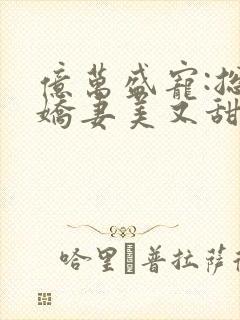 億萬盛寵:總
嬌妻美又甜
哈里�普拉薩諾